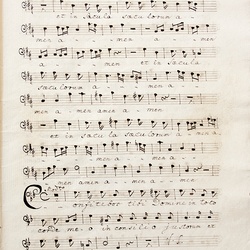 et in sacula saculorum a -
men a - - - men a -
a - - men et in sacula
saculorum a - - - - men
a men amen a - men
et in sacula saculorum amen a
- - - men a - - - men a
men amen a - men - men
Confitebor tibi Domine in toto
corde meo in consilio justorum et